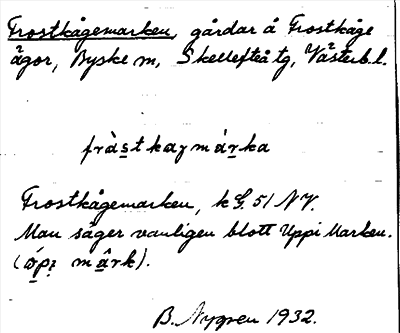 Frostkågemarken, gårdar å Frostkåge
ägor, Byske sn, Skellefteå tg, Västerb. l.
fràstkaɣmárka
Frostkågemarken, k 51 NV.
Man säger vanligen blott Uppi Marken.
(mârk).
B. Nygren 1932.